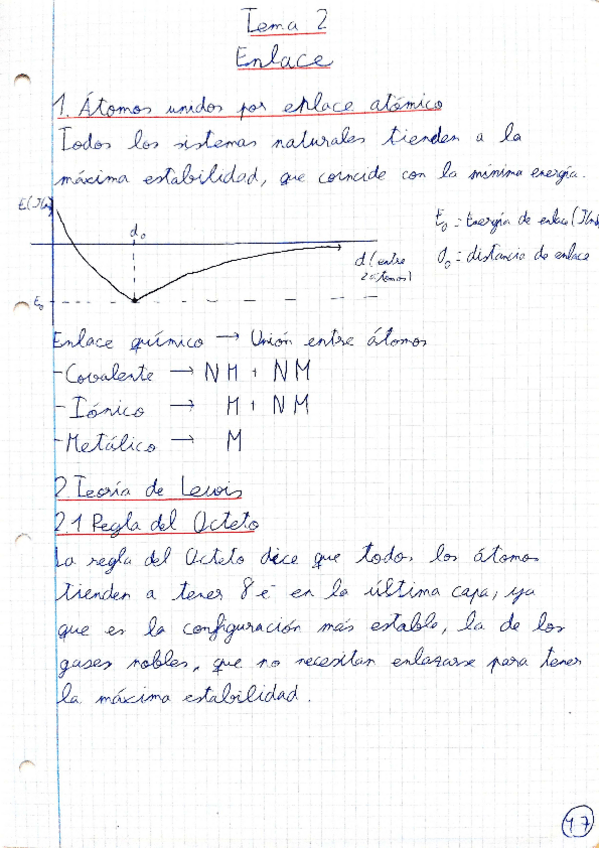 Tema 2
Enlace
1. Átomos unidos por enlace atómico
Todos los sistemas naturales tienden a la
máxima estabilidad, que coincide con la mínima energía.
E0 : Energía de enlace
d0
d (entre
2 átomos)
d0 : distancia de enlace
E0
Enlace químico → Unión entre átomos
- Covalente → NM + NM
- Iónico → M + NM
- Metálico → M
2. Teoría de Lewis
2.1 Regla del Octeto
La regla del Octeto dice que todos los átomos
tienden a tener 8 e⁻ en la última capa, ya
que es la configuración más estable, la de los
gases nobles, que no necesitan enlazarse para tener
la máxima estabilidad.
17